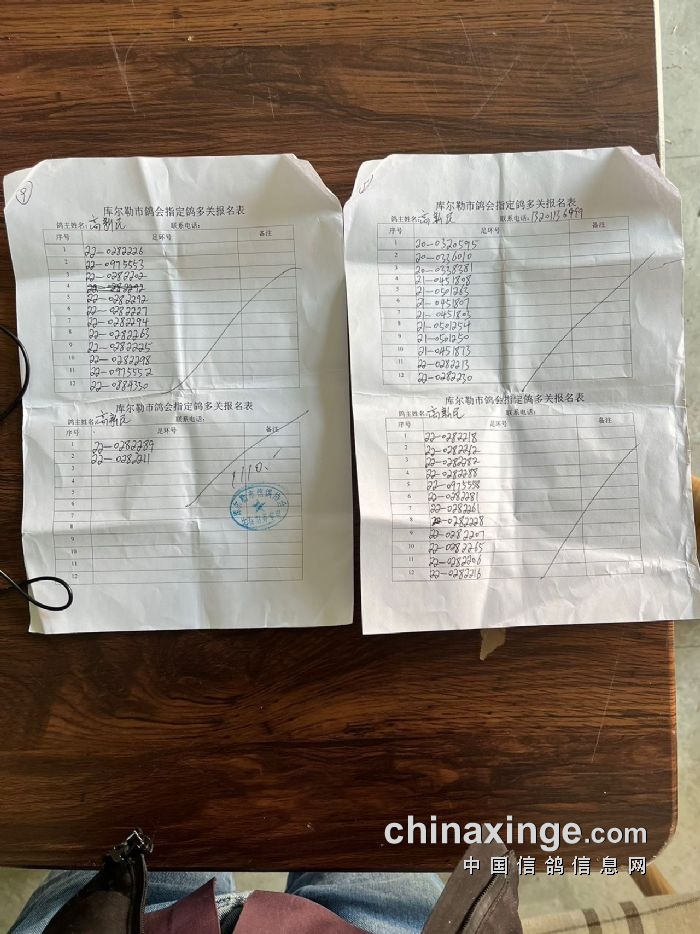 9
库尔勒市鸽会指定鸽多关报名表
鸽主姓名: 高新民 联系电话:
序号 足环号 备注
1 22-0282226
2 22-0975553
3 22-0282202
4 22-0282292
5 22-0282292
6 22-0282227
7 22-0282294
8 22-0282263
9 22-0282225
10 22-0282298
11 22-0975552
12 22-0889350
库尔勒市鸽会指定鸽多关报名表
鸽主姓名: 高新民 联系电话:
序号 足环号 备注
1 22-0282289
2 22-0282211
3
4
5
6
7
8
9
10
11
12
库尔勒市鸽会指定鸽多关报名表
鸽主姓名: 高新民 联系电话:
序号 足环号 备注
1 20-0320595
2 20-0336010
3 20-0338381
4 21-0451808
5 21-0501263
6 21-0451807
7 21-0451803
8 21-0501254
9 21-0501250
10 21-0451873
11 22-0282213
12 22-0282230
库尔勒市鸽会指定鸽多关报名表
鸽主姓名: 高新民 联系电话:
序号 足环号 备注
1 22-0282218
2 22-0282212
3 22-0282282
4 22-0282288
5 22-0975558
6 22-0282281
7 22-0282261
8 22-0282228
9 22-0282207
10 22-0282265
11 22-0282206
12 22-0282216
chinaxinge.com
中国信鸽信息网